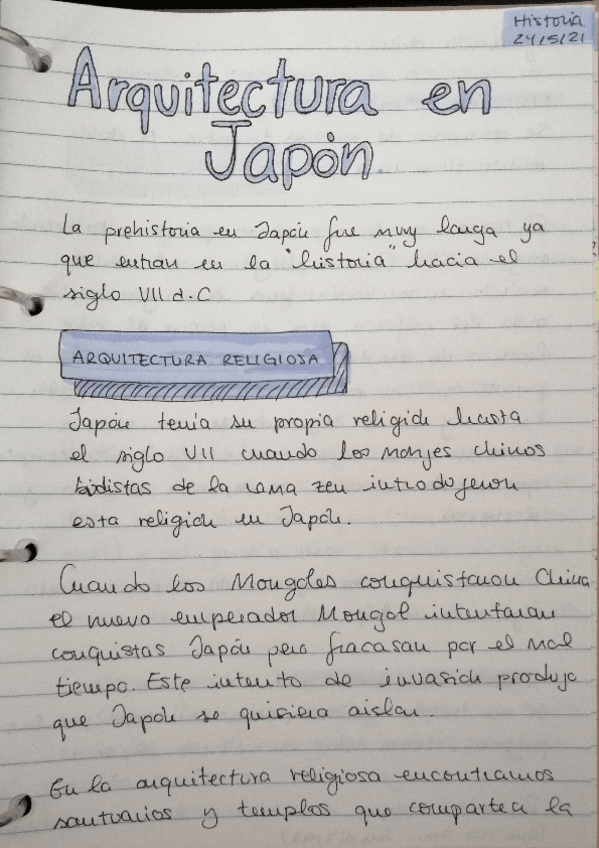 Historia
24/5/21
Arquitectura en
Japón.
La prehistoria en Japón fue muy larga ya
que entran en la "historia" hacia el
siglo VII d.C
ARQUITECTURA RELIGIOSA
Japón tenía su propia religión hasta
el siglo VII cuando los monjes chinos
budistas de la rama zen introdujeron
esta religión en Japón.
Cuando los Mongoles conquistaron China
el nuevo emperador Mongol intentaran
conquistas Japón pero fracasan por el mal
tiempo. Este intento de invasión produjo
que Japón se quisiera aislar.
En la arquitectura religiosa encontramos
santuarios y templos que comparten la